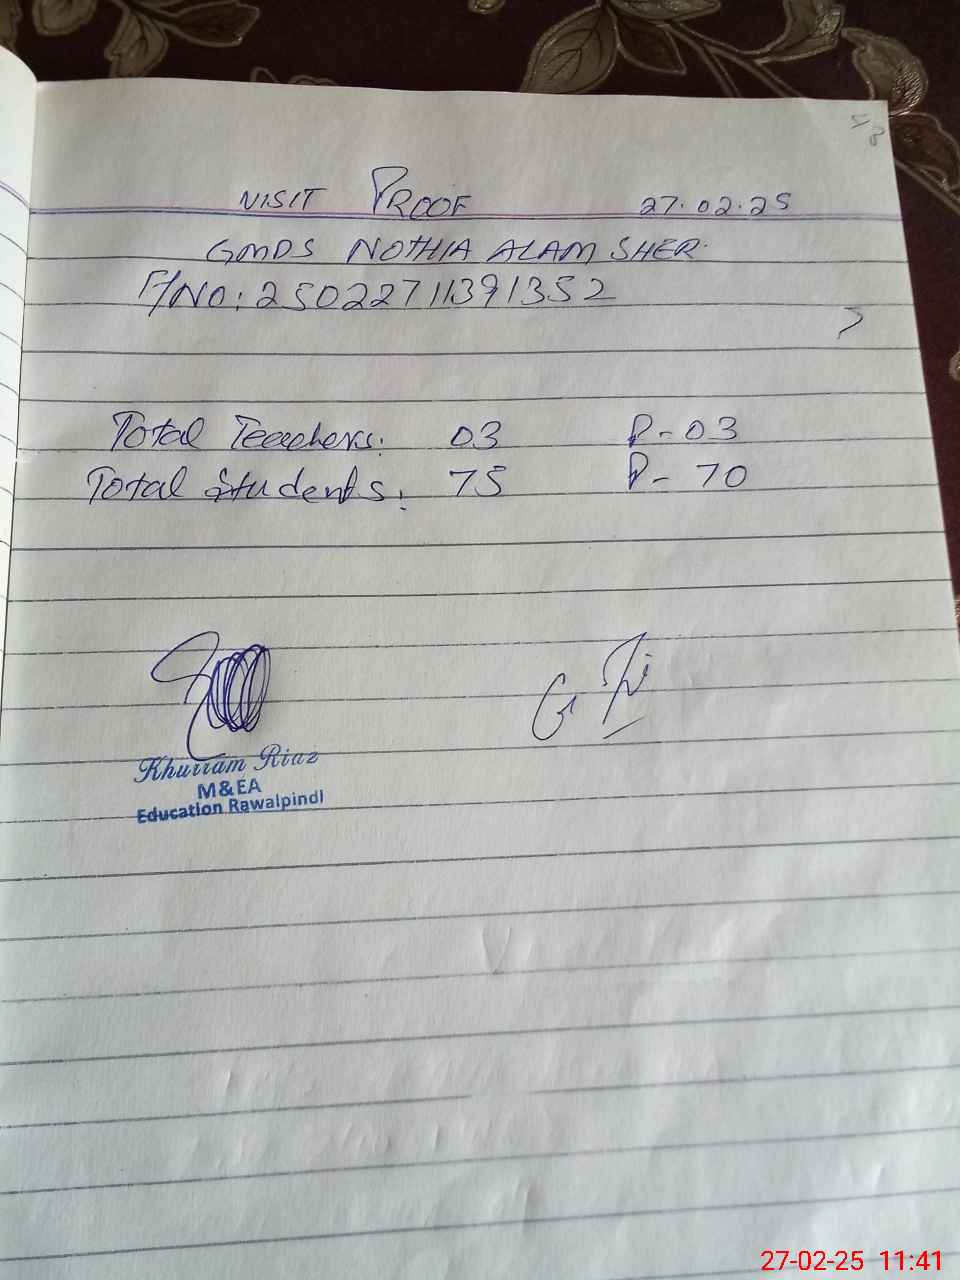 VISIT PROOF 27.02.25
GMDS NOTHIA ALAM SHER.
F/NO: 25022711391352
Total Teachers: 03 P-03
Total Students: 75 P-70
Khurram Riaz
M&EA
Education Rawalpindi
27-02-25 11:41